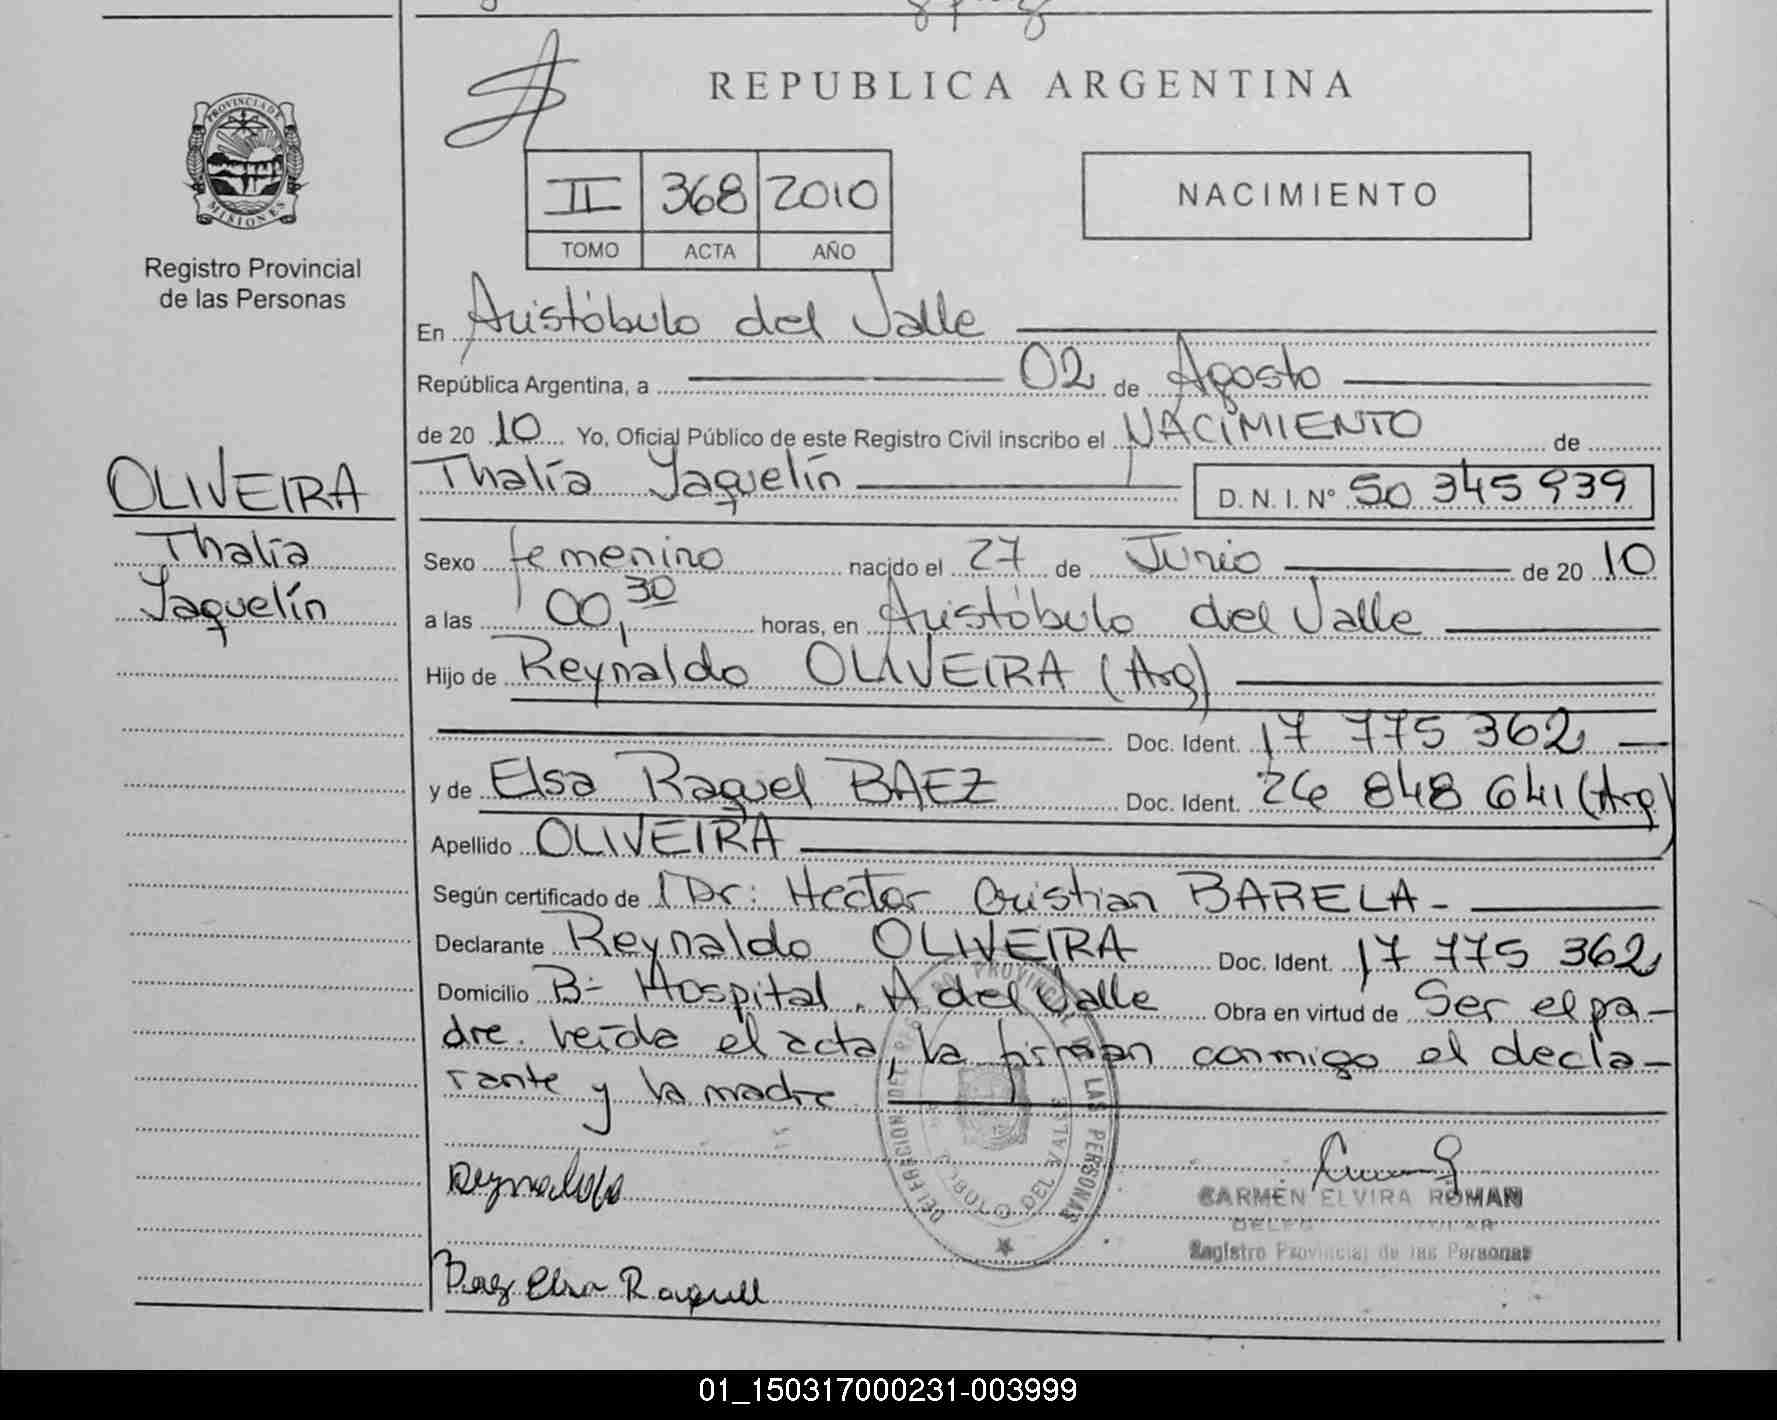 REPUBLICA ARGENTINA
PROVINCIA DE MISIONES
II 368 2010
TOMO ACTA AÑO
NACIMIENTO
Registro Provincial
de las Personas
En Aristóbulo del Valle
República Argentina, a 02 de Agosto
de 20 10 Yo, Oficial Público de este Registro Civil inscribo el NACIMIENTO de
OLIVEIRA
Thalía Yaquelín D. N. I. N° 50 345 939
Thalía
Yaquelín
Sexo femenino nacido el 27 de Junio de 20 10
a las 00,30 horas, en Aristóbulo del Valle
Hijo de Reynaldo OLIVEIRA (Arg)
Doc. Ident. 17 775 362
y de Elsa Raquel BAEZ Doc. Ident. 26 848 641 (Arg)
Apellido OLIVEIRA
Según certificado de Dr: Hector Cristian BARELA-
Declarante Reynaldo OLIVEIRA Doc. Ident. 17 775 362
Domicilio B- Hospital, A del Valle Obra en virtud de Ser el pa-
dre. leída el acta, la firman conmigo el decla-
rante y la madre
DELEGACION DEL REGISTRO PROVINCIAL DE LAS PERSONAS
DEL VALLE
Reynaldo
CARMEN ELVIRA ROMAN
Registro Provincial de las Personas
Baez Elsa Raquell
01_150317000231-003999